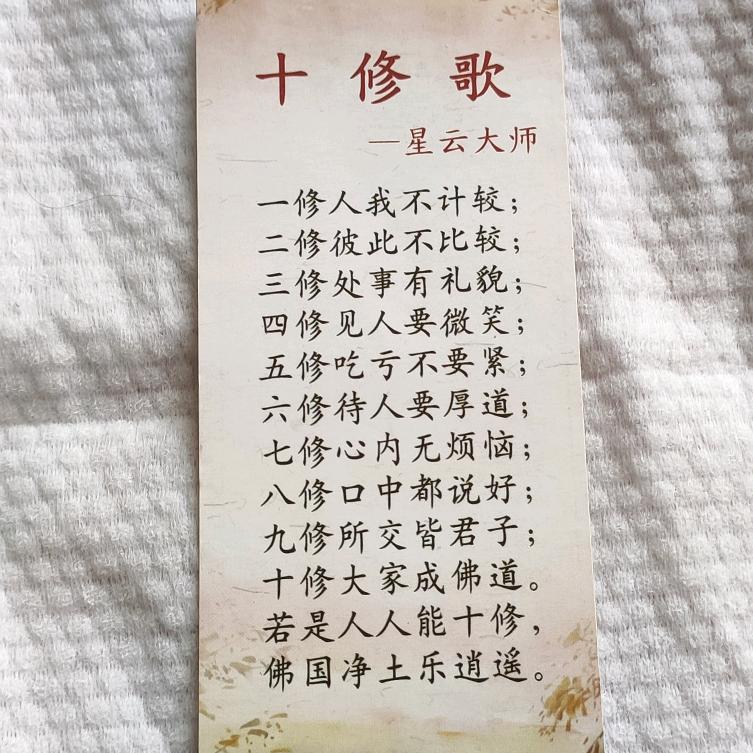 十修歌
—星云大师
一修人我不计较；
二修彼此不比较；
三修处事有礼貌；
四修见人要微笑；
五修吃亏不要紧；
六修待人要厚道；
七修心内无烦恼；
八修口中都说好；
九修所交皆君子；
十修大家成佛道。
若是人人能十修，
佛国净土乐逍遥。